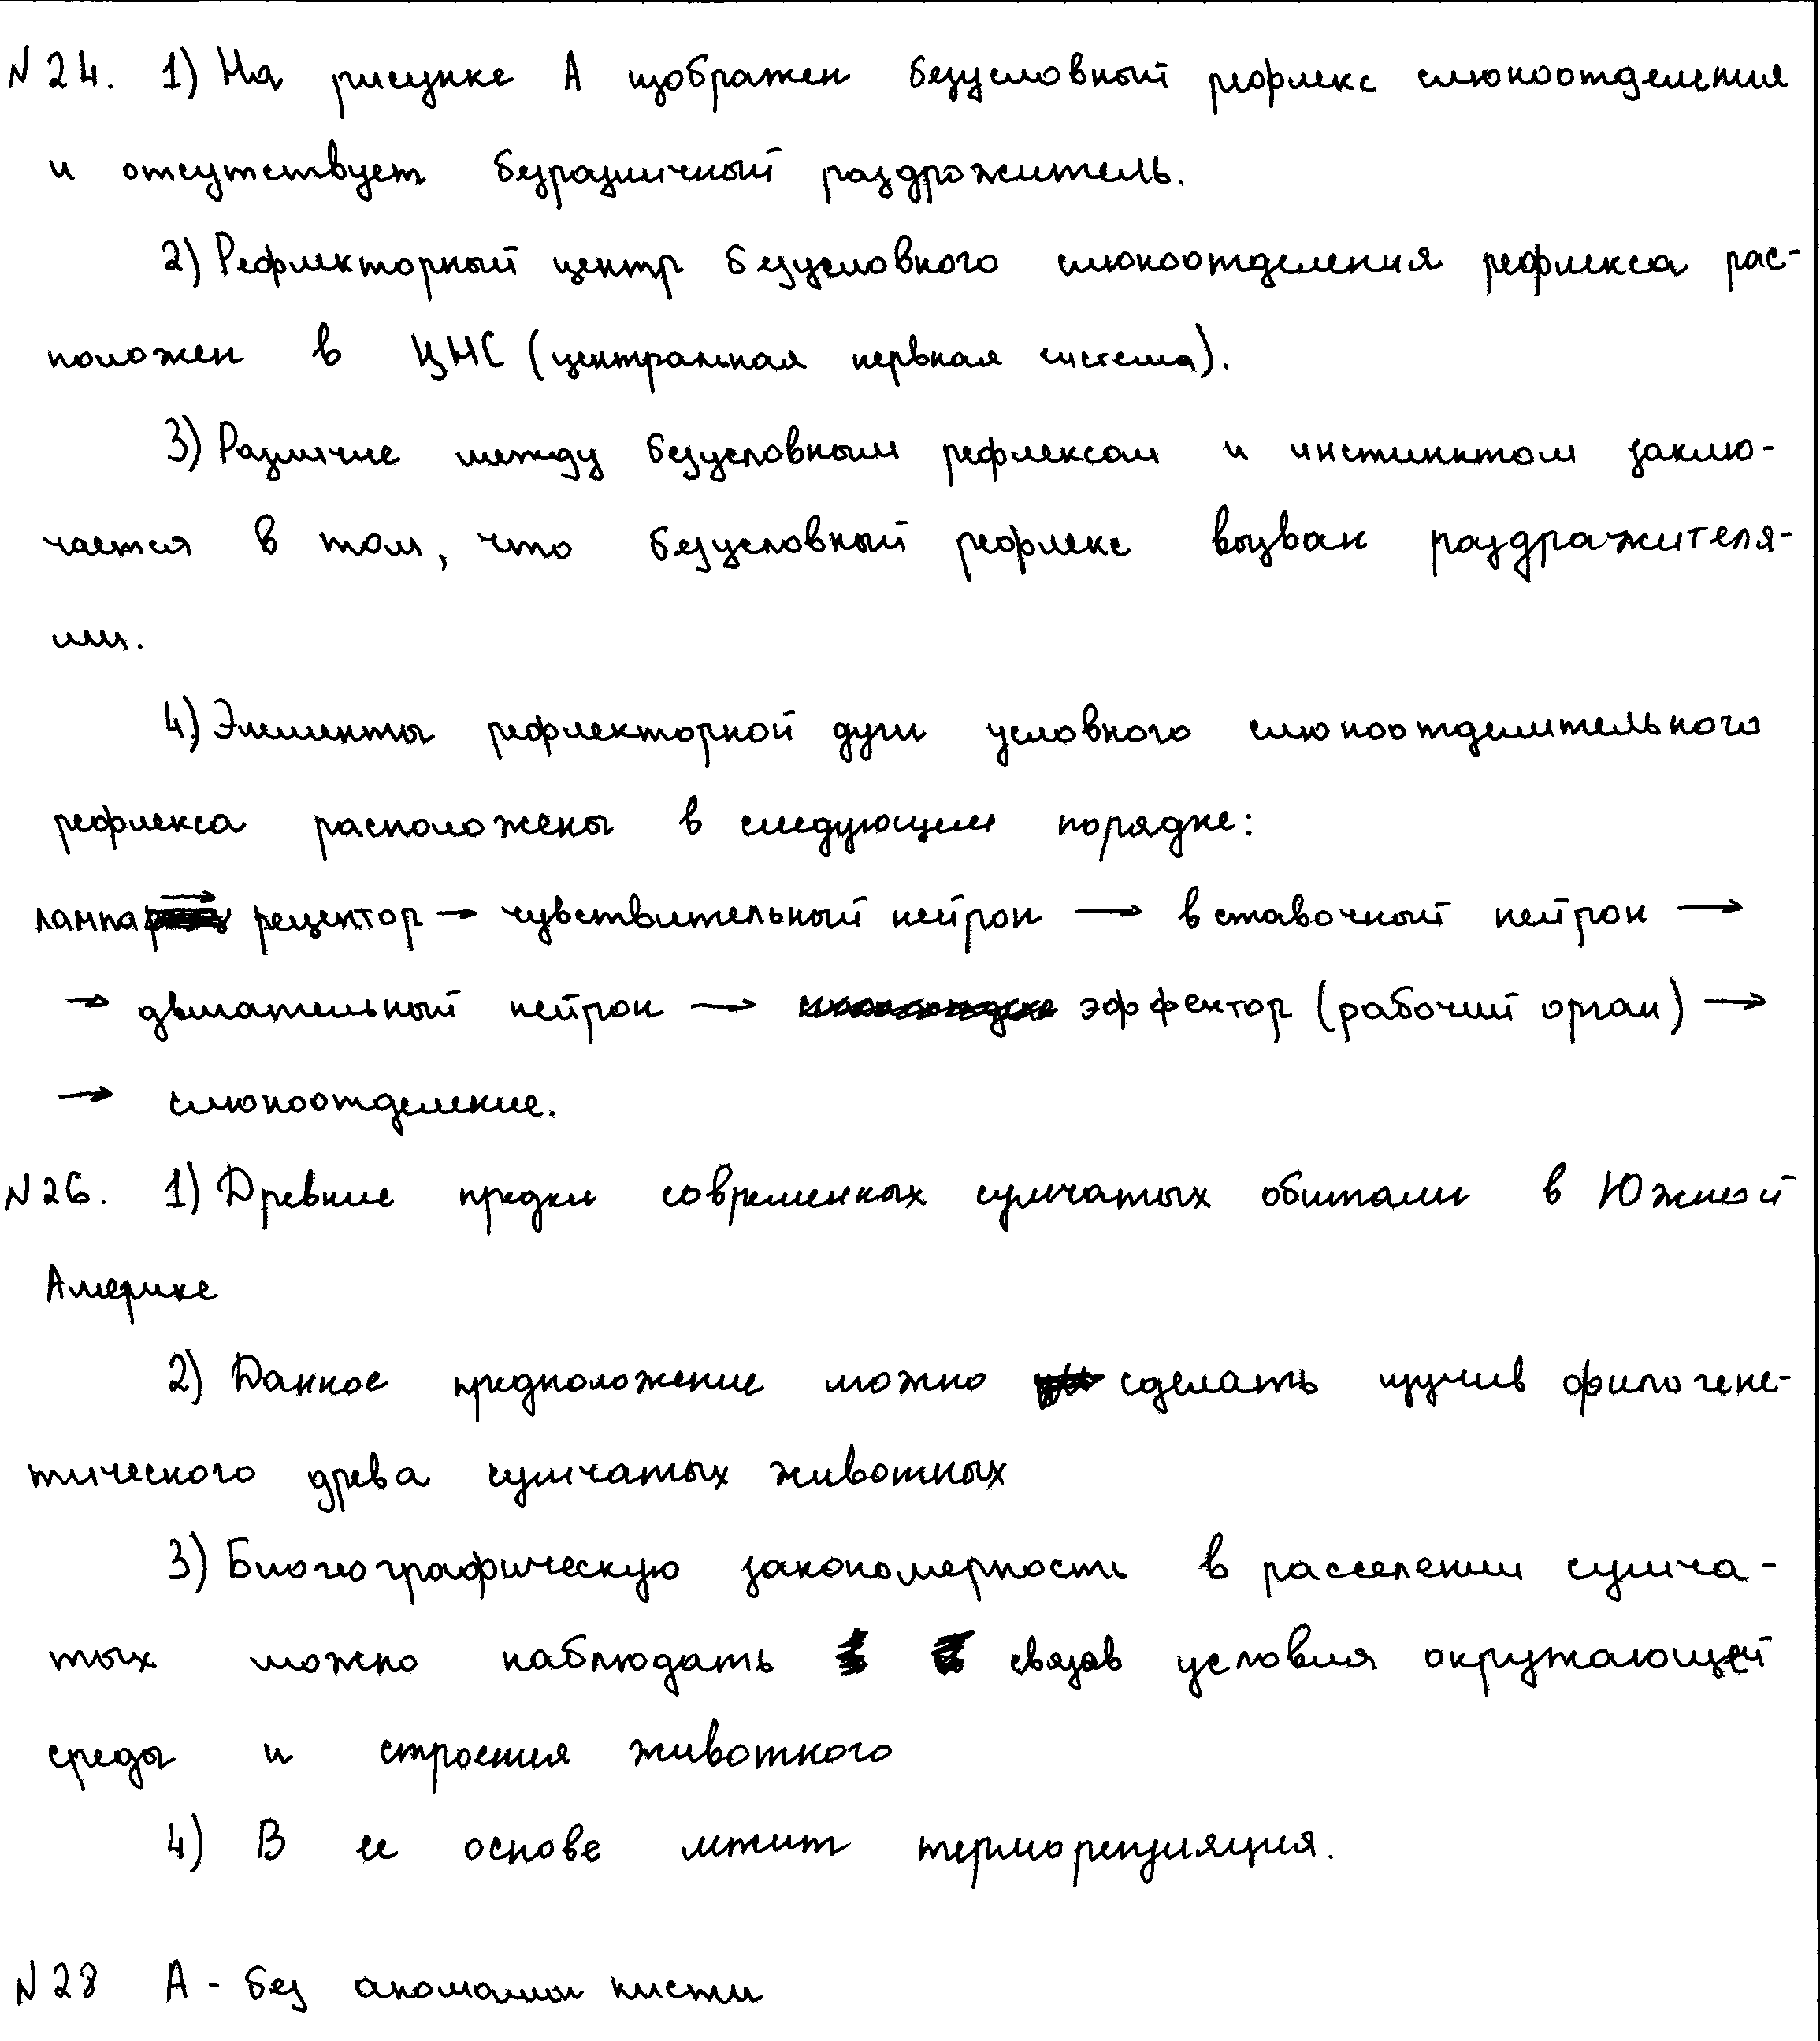 N24. 1) На рисунке А изображен безусловный рефлекс слюноотделения
и отсутствует безразличный раздрожитель.
2) Рефлекторный центр безусловного слюноотделения рефлекса рас-
положен в ЦНС (центральная нервная система).
3) Различие между безусловным рефлексом и инстинктом заклю-
чается в том, что безусловный рефлекс вызван раздражителя-
ми.
4) Элементы рефлекторной дуги условного слюноотделительного
рефлекса расположены в следующем порядке:
лампа → рецептор → чувствительный нейрон → вставочный нейрон →
→ двигательный нейрон → эффектор (рабочий орган) →
→ слюноотделение.
N26. 1) Древние предки современных сумчатых обитали в Южной
Америке
2) Данное предположение можно сделать изучив филогене-
тического древа сумчатых животных
3) Биогеографическую закономерность в расселении сумча-
тых можно наблюдать связав условия окружающей
среды и строения животного
4) В ее основе лежит терморегуляция.
N28 А - без аномалии кисти